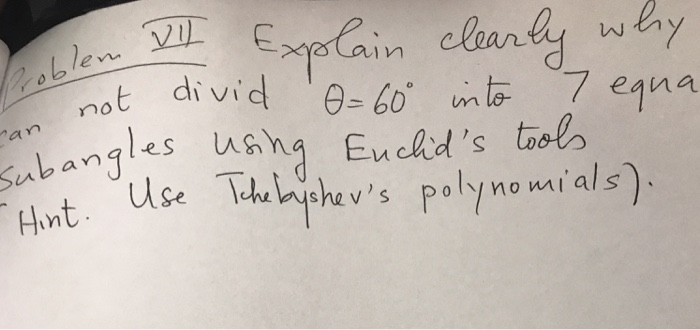 Problem VII Explain clearly why
can not divid θ=60° into 7 equa
subangles using Euclid's tools
Hint. Use Tchebyshev's polynomials).